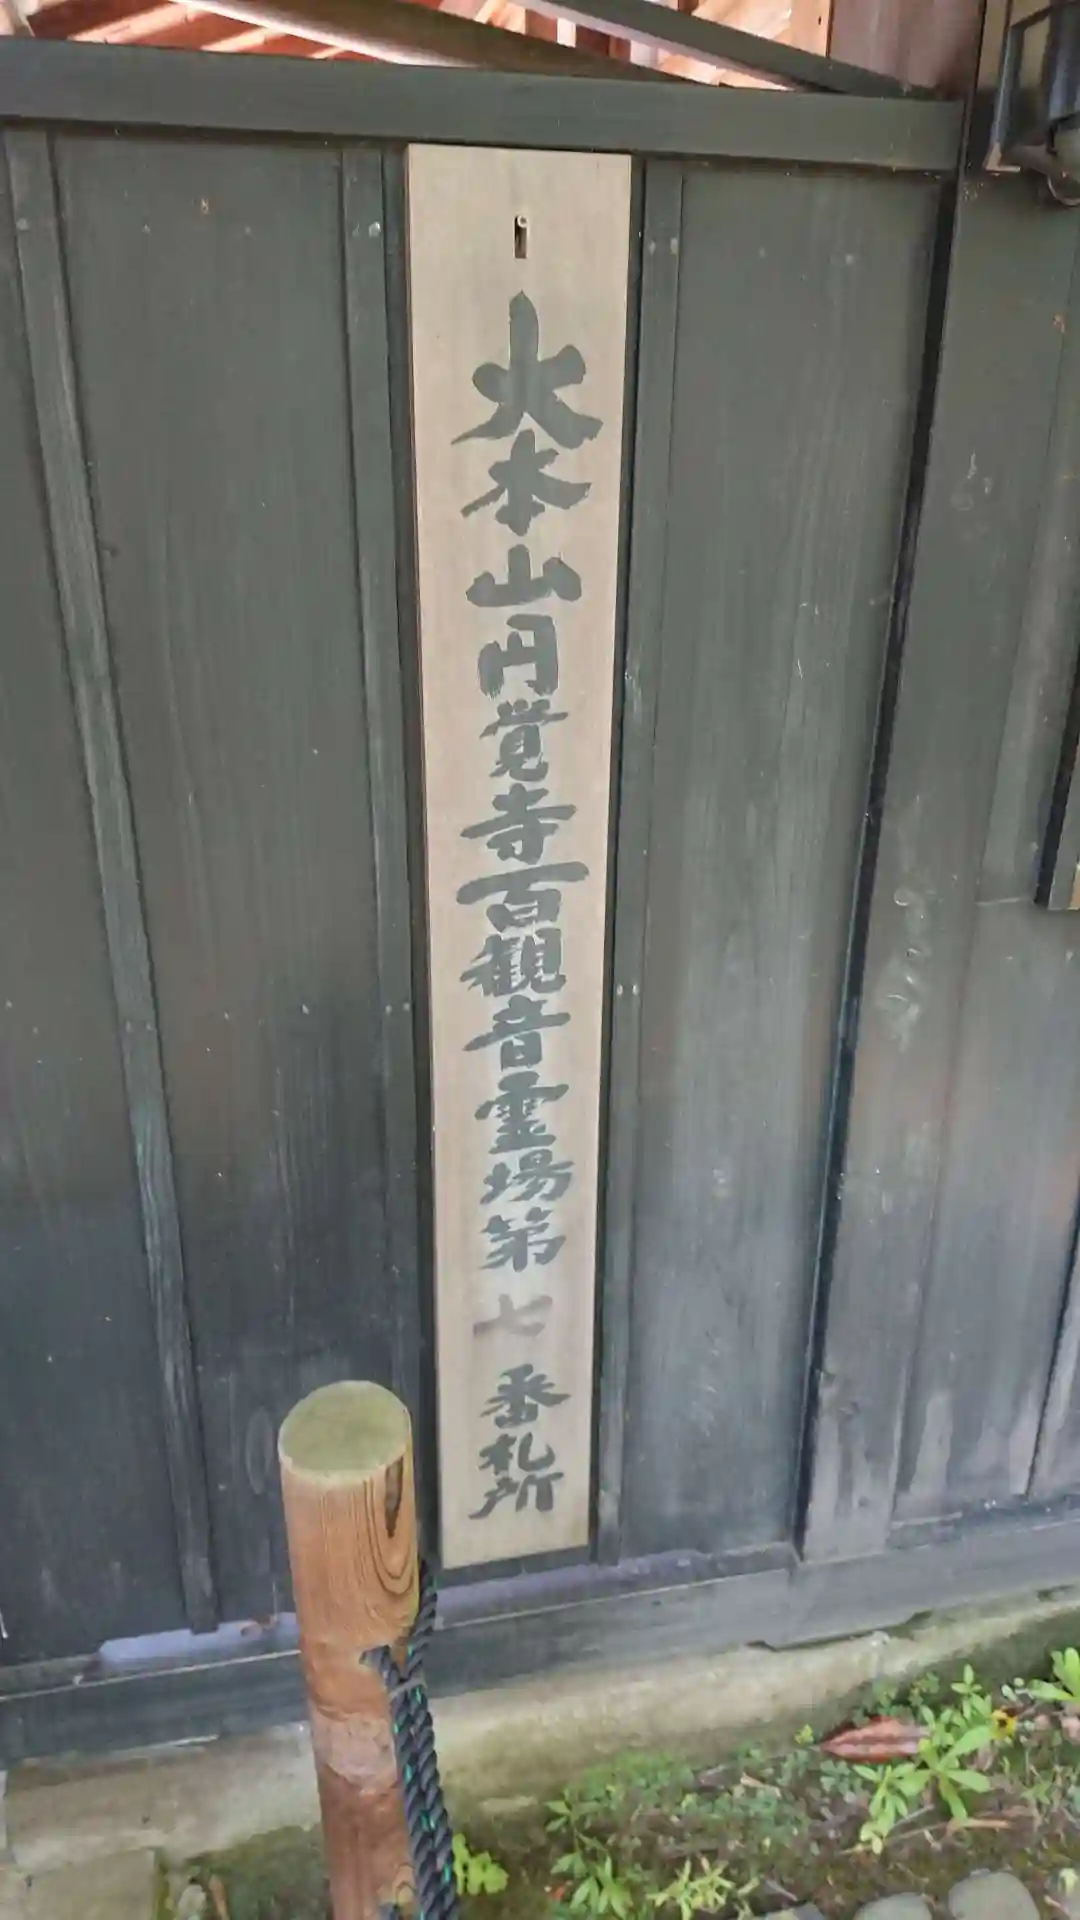 大本山円覚寺百観音霊場第七番札所